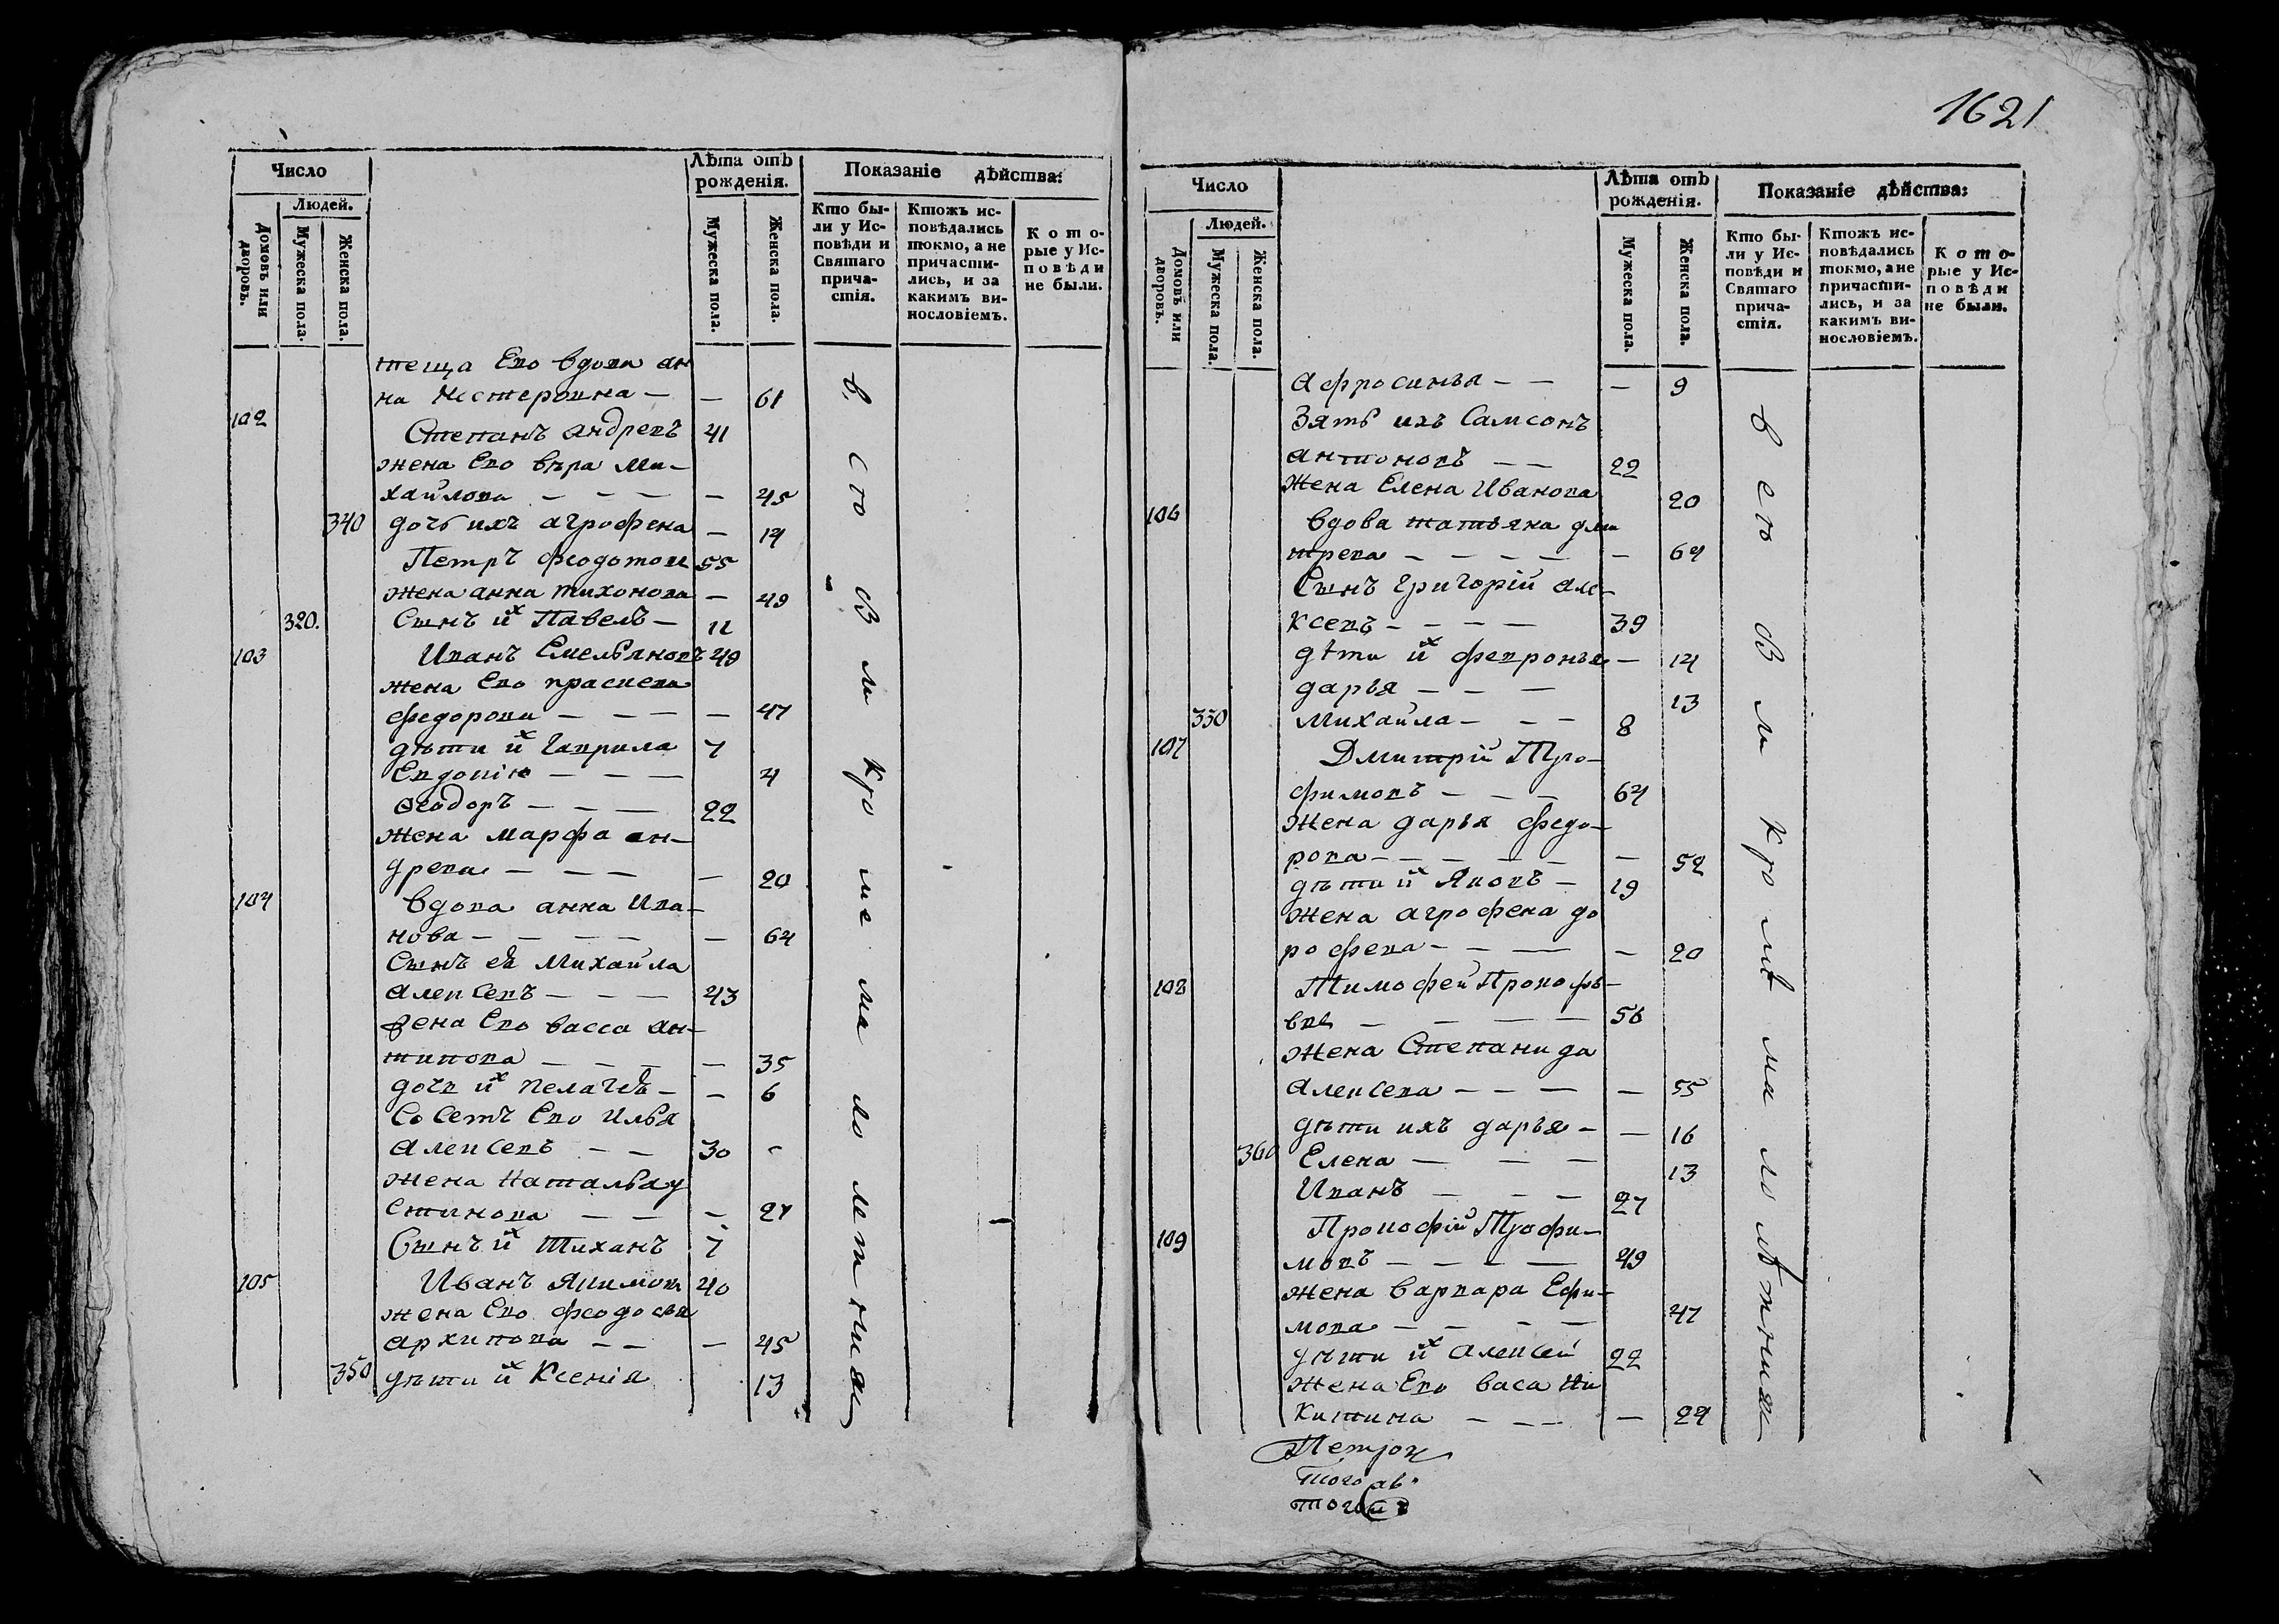 Число
Людей.
Домовъ или дворовъ.
Мужеска пола.
Женска пола.
Лѣта отъ рожденія.
Мужеска пола.
Женска пола.
Показаніе дѣйства:
Кто бы-
ли у Ис-
повѣди и
Святаго
прича-
стія.
Ктожъ ис-
повѣдались
токмо, а не
причасти-
лись, и за
какимъ ви-
нословіемъ.
Кото-
рые у Ис-
повѣди
не были.
теща Ево вдова ан
на Нестеровна — — 61
102
Степанъ андревъ 41
жена Ево вѣра ми-
хайлова — — — — 45
340 дочь ихъ агрофена — 14
Петръ феодотов 55
жена анна тихонова — 49
320. Сынъ их Павелъ — 11
103 Иванъ Емельяновъ 49
жена Ево прасцева
федорова — — — — 47
дѣти их Гаврила 7
Евдокія — — — 4
Ѳеодоръ — — — 22
жена марфа ан-
древа — — — — 20
104 вдова анна Ива-
нова — — — — — 64
Сынъ еѣ Михайла
алексевъ — — — 43
жена Ево васса ан-
типова — — — — — 35
дочь их пелагеѣ — — 6
Со Сетъ Ево Илья
алексевъ — — 30
жена Наталья у
стинова — — — 27
Сынъ их Тиханъ 7
105 Иванъ Якимовъ 40
жена Ево феодосья
архипова — — — 45
350 дѣти их Ксенія 13
всѣ в ли кро ме ма ло лет ния
1621
Число
Людей.
Домовъ или дворовъ.
Мужеска пола.
Женска пола.
Лѣта отъ рожденія.
Мужеска пола.
Женска пола.
Показаніе дѣйства:
Кто бы-
ли у Ис-
повѣди и
Святаго
прича-
стія.
Ктожъ ис-
повѣдались
токмо, а не
причасти-
лись, и за
какимъ ви-
нословіемъ.
Кото-
рые у Ис-
повѣди
не были.
афросинья — — — 9
Зять ихъ Самсонъ
антоновъ — — 22
жена Елена Иванова 20
106 вдова татьяна дми
трева — — — — — 64
Сынъ григорій але-
ксевъ — — — — 39
дѣти их февронья — 14
дарья — — — 13
330 михайла — — — 8
107 Дмитрій Тро-
фимовъ — — — 64
жена дарья федо-
рова — — — — — — 52
дѣти их Яковъ — 19
жена агрофена до
рофева — — — — 20
108 Тимофей Прокофь-
евъ — — — — 56
жена Степанида
алексева — — — — 55
дѣти ихъ дарья — — 16
360 Елена — — — 13
Иванъ — — — 27
109 Прокофій Трофи-
мовъ — — — — 49
жена варвара Ефи-
мова — — — — 47
дѣти их алексей 22
жена Ево васа Ни
китина — — — — 24
кро мѣ ма ло лѣт ния